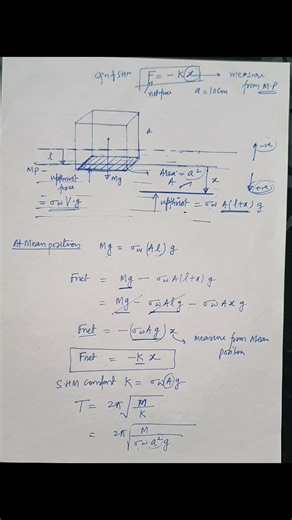 eqn of SHM F = -K x → measure from M.P
net force a = 10cm
a
l
MP
upthrust force
Mg
Area = a²
A
x
-ve
+ve
= σw V·g
upthrust = σw A(l+x) g
At Mean position Mg = σw (Al) g
Fnet = Mg - σw A(l+x) g
= Mg - σw Alg - σw Ax g
Fnet = -(σw Ag) x → measure from Mean position
Fnet = -K x
SHM constant K = σw A g
T = 2π√(M/K)
= 2π√(M/(σw a² g))